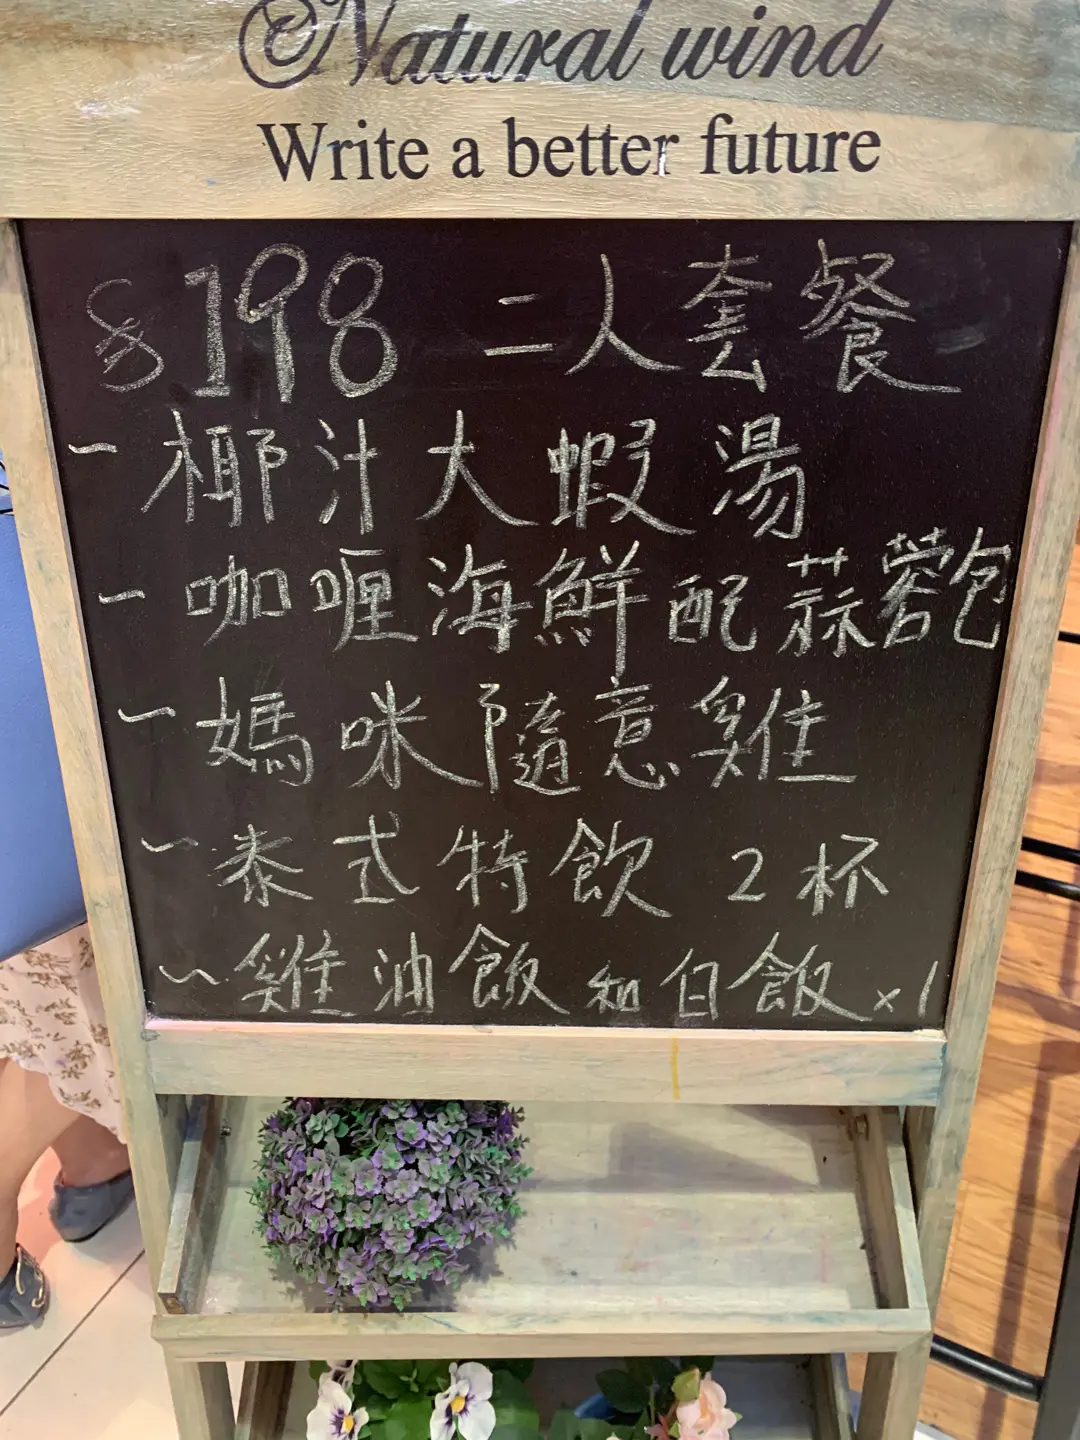 Natural wind
Write a better future
$198 二人套餐
- 椰汁大蝦湯
- 咖喱海鮮配蒜蓉包
- 媽咪隨意雞
- 泰式特飲2杯
- 雞油飯和白飯x1